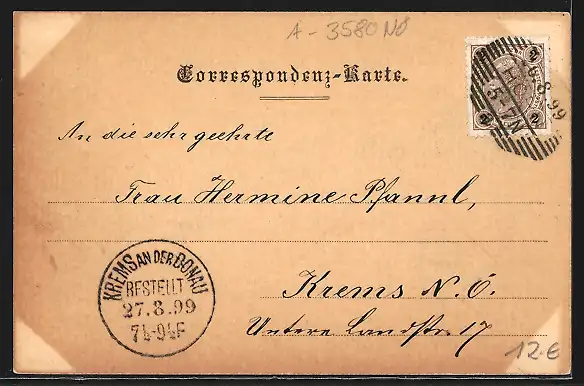 A - 3580 NÖ
Correspondenz-Karte.
2 2
2 2
8.99
5-7N
An die sehr geehrte
Frau Hermine Pfannl,
Krems N. Ö.
Untere Landstr. 17
KREMS AN DER DONAU
BESTELLT
27.8.99
7½-9½F
12.€